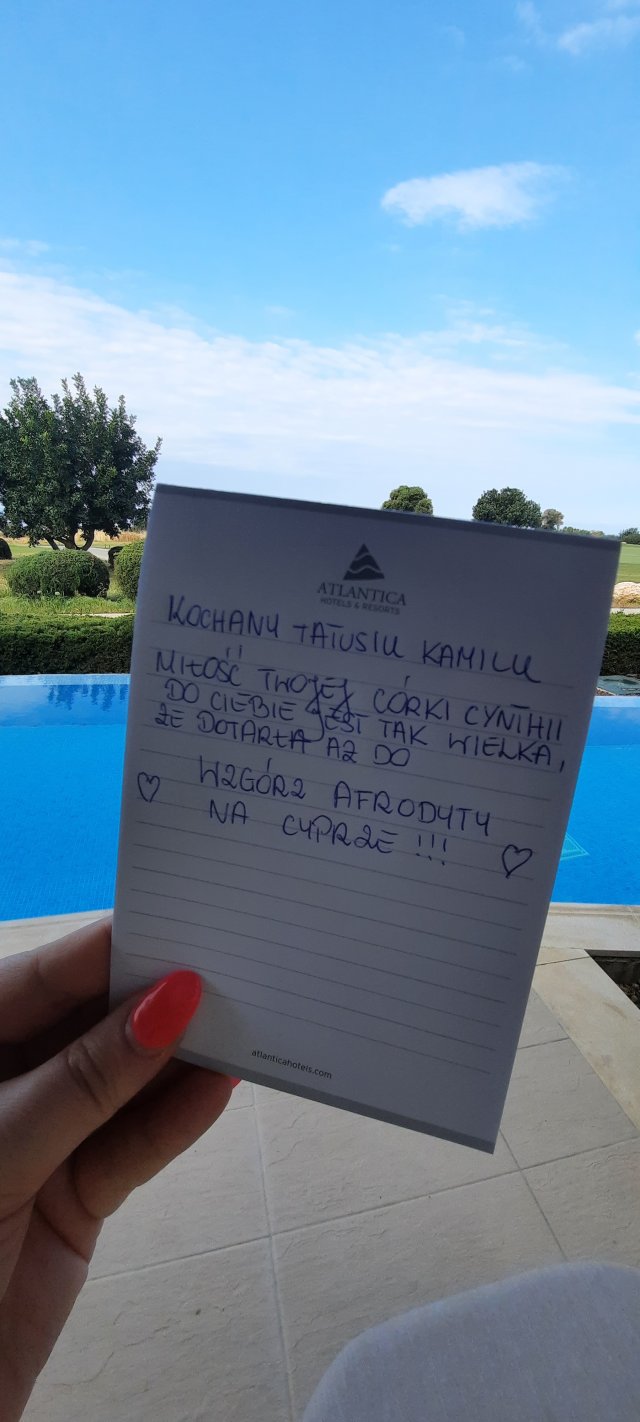 ATLANTICA
HOTELS & RESORTS
KOCHANY TATUSIU KAMILU
MIŁOŚĆ TWOJEJ CÓRKI CYNTHII
DO CIEBIE JEST TAK WIELKA,
ŻE DOTARŁA AŻ DO
WZGÓRZ AFRODYTY
NA CYPRZE !!!
atlanticahotels.com